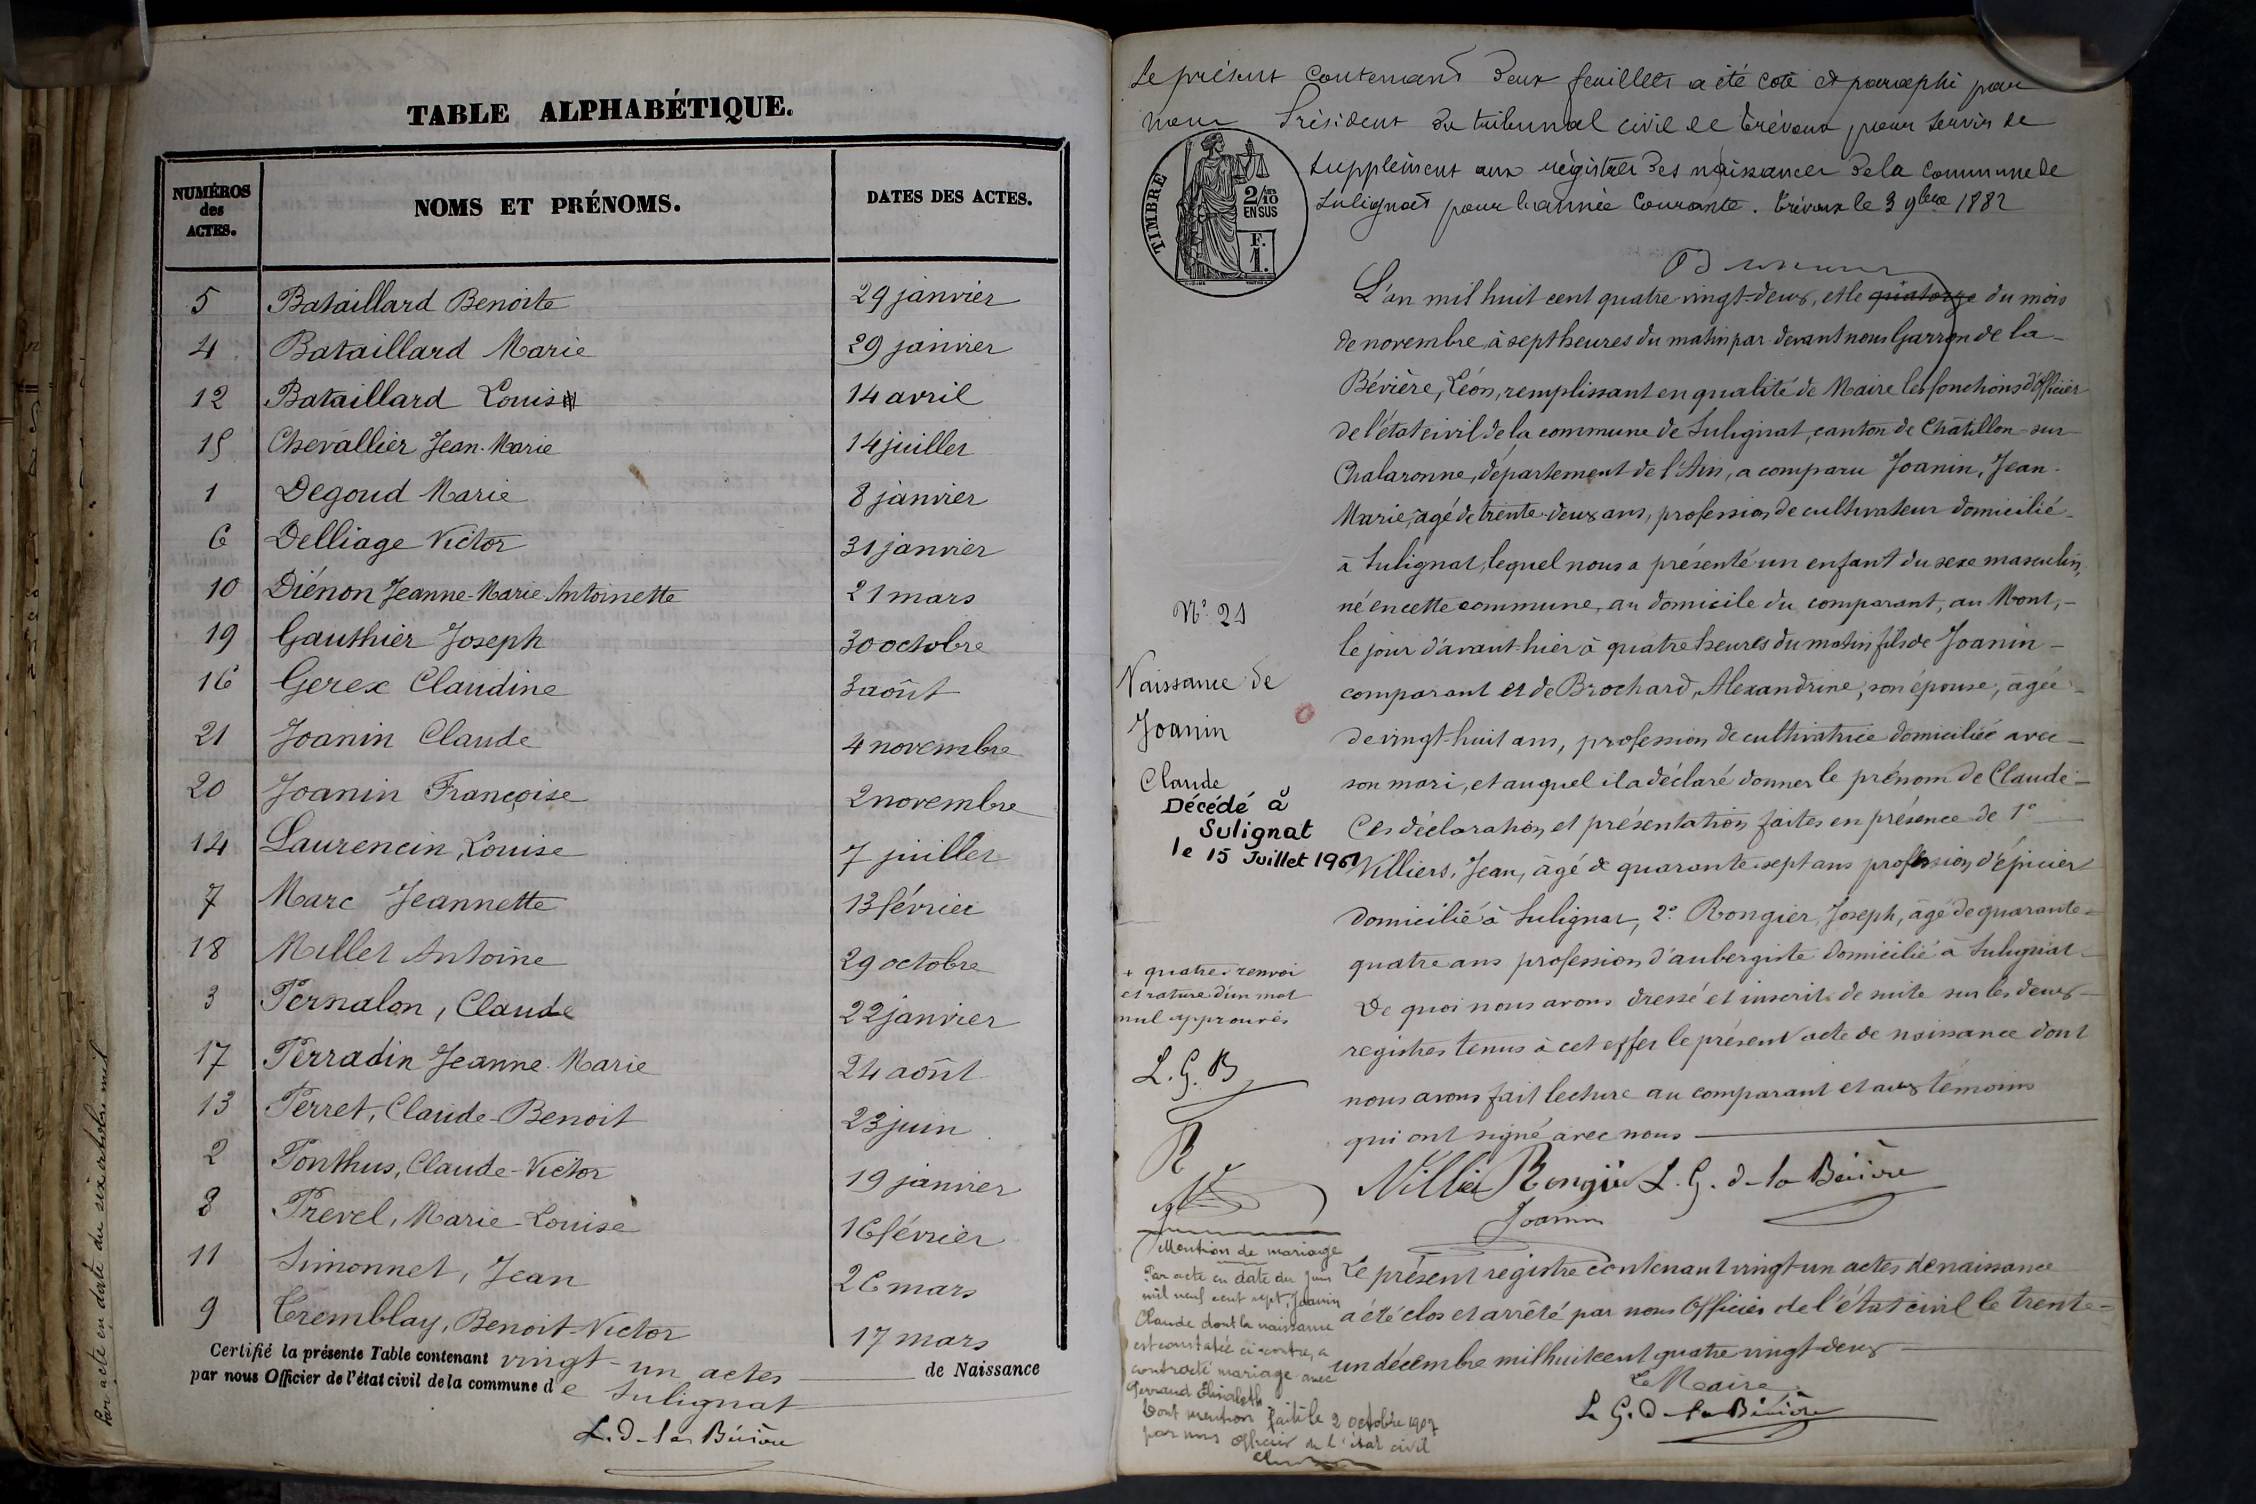 TABLE ALPHABÉTIQUE.
NUMÉROS des ACTES.
NOMS ET PRÉNOMS.
DATES DES ACTES.
5 Bataillard Benoite 29 janvier
4 Bataillard Marie 29 janvier
12 Bataillard Louis 14 avril
15 Chevallier Jean-Marie 14 juillet
1 Degoud Marie 8 janvier
6 Delliage Victor 31 janvier
10 Diénon Jeanne-Marie Antoinette 21 mars
19 Gauthier Joseph 30 octobre
16 Gerex Claudine 3 août
21 Joanin Claude 4 novembre
20 Joanin Françoise 2 novembre
14 Laurencin, Louise 7 juillet
7 Marc Jeannette 13 février
18 Millet Antoine 29 octobre
3 Pernalon, Claude 22 janvier
17 Perradin Jeanne-Marie 24 août
13 Perret, Claude-Benoit 23 juin
2 Ponthus, Claude-Victor 19 janvier
8 Prevel, Marie-Louise 16 février
11 Simonnet, Jean 26 mars
9 Tremblay, Benoit-Victor 17 mars
Certifié la présente Table contenant vingt-un actes de Naissance
par nous Officier de l'état civil de la commune de Sulignat
L. D. la Bévière
Par acte en date du six octobre mil
Le présent contenant deux feuillets a été coté et paraphé par
nous Président du tribunal civil de Trévoux, pour servir de
supplément aux registres des naissances de la commune de
Sulignat pour l'année courante. Trévoux le 3 9bre 1882
TIMBRE
2/10
EN SUS
F.
1.
L'an mil huit cent quatre vingt-deux, et le quatorze du mois
de novembre, à sept heures du matin par devant nous Garron de la
Bévière, Léon, remplissant en qualité de Maire les fonctions d'Officier
de l'état civil de la commune de Sulignat, canton de Châtillon-sur-
Chalaronne, département de l'Ain, a comparu Joanin, Jean-
Marie, âgé de trente-deux ans, profession de cultivateur domicilié
à Sulignat, lequel nous a présenté un enfant du sexe masculin,
né en cette commune, au domicile du comparant, au Mont,
le jour d'avant-hier à quatre heures du matin fils de Joanin
comparant et de Brochard, Alexandrine, son épouse, âgée
de vingt-huit ans, profession de cultivatrice domiciliée avec
son mari, et auquel il a déclaré donner le prénom de Claude
Ces déclaration et présentation faites en présence de 1°
Villiers, Jean, âgé de quarante-sept ans profession d'épicier
domicilié à Sulignat, 2° Rongier, Joseph, âgé de quarante-
quatre ans profession d'aubergiste domicilié à Sulignat
De quoi nous avons dressé et inscrit de suite sur les deux
registres tenus à cet effet le présent acte de naissance dont
nous avons fait lecture au comparant et aux témoins
qui ont signé avec nous
Villier Rongier L. G. d. la Bévière
Joanin
N° 21
Naissance de
Joanin
Claude
Décédé à
Sulignat
le 15 Juillet 1961
+ quatre, renvoi
et rature d'un mot
nul approuvés
L. G. B
R
Mention de mariage
Par acte en date du juin
mil neuf cent sept, Joanin
Claude dont la naissance
est constatée ci-contre, a
contracté mariage avec
Perraud Elisabeth
Dont mention faite le 2 octobre 1907
par nous officier de l'état civil
Le présent registre contenant vingt-un actes de naissance
a été clos et arrêté par nous Officier de l'état civil le trente-
un décembre mil huit cent quatre vingt-deux
Le Maire
L. G. d. la Bévière